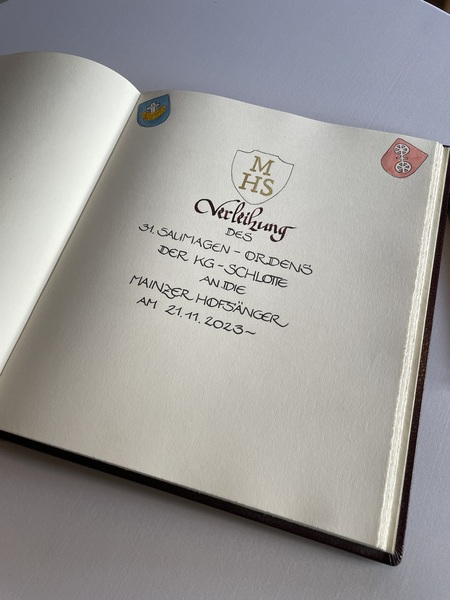 M
HS
Verleihung
DES
31. SAUMAGEN - ORDENS
DER KG - SCHLOTTE
AN DIE
MAINZER HOFSÄNGER
AM 21.11.2023~